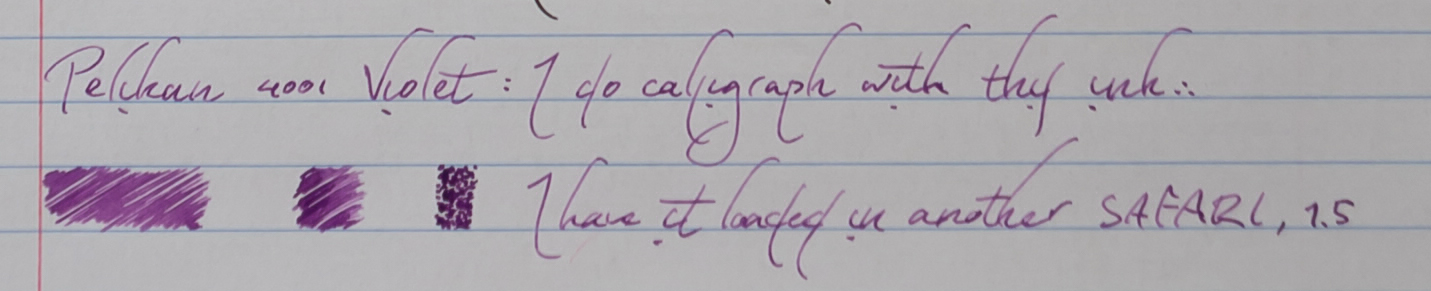 Pelikan 4001 Violet: I do caligraph with this ink..
I have it loaded in another SAFARI, 1.5